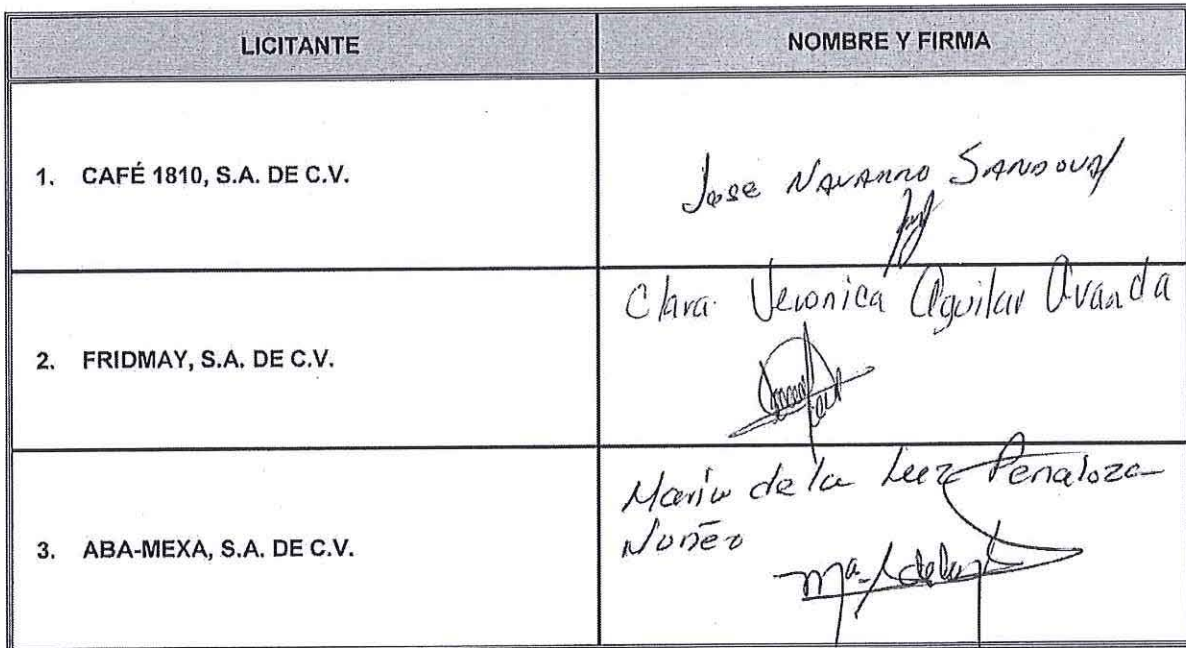 LICITANTE
NOMBRE Y FIRMA
1. CAFÉ 1810, S.A. DE C.V.
Jose Navarro Sandoval
2. FRIDMAY, S.A. DE C.V.
Clara Veronica Aguilar
3. ABA-MEXA, S.A. DE C.V.
Maria de la Luz Penaloza
Nuñez